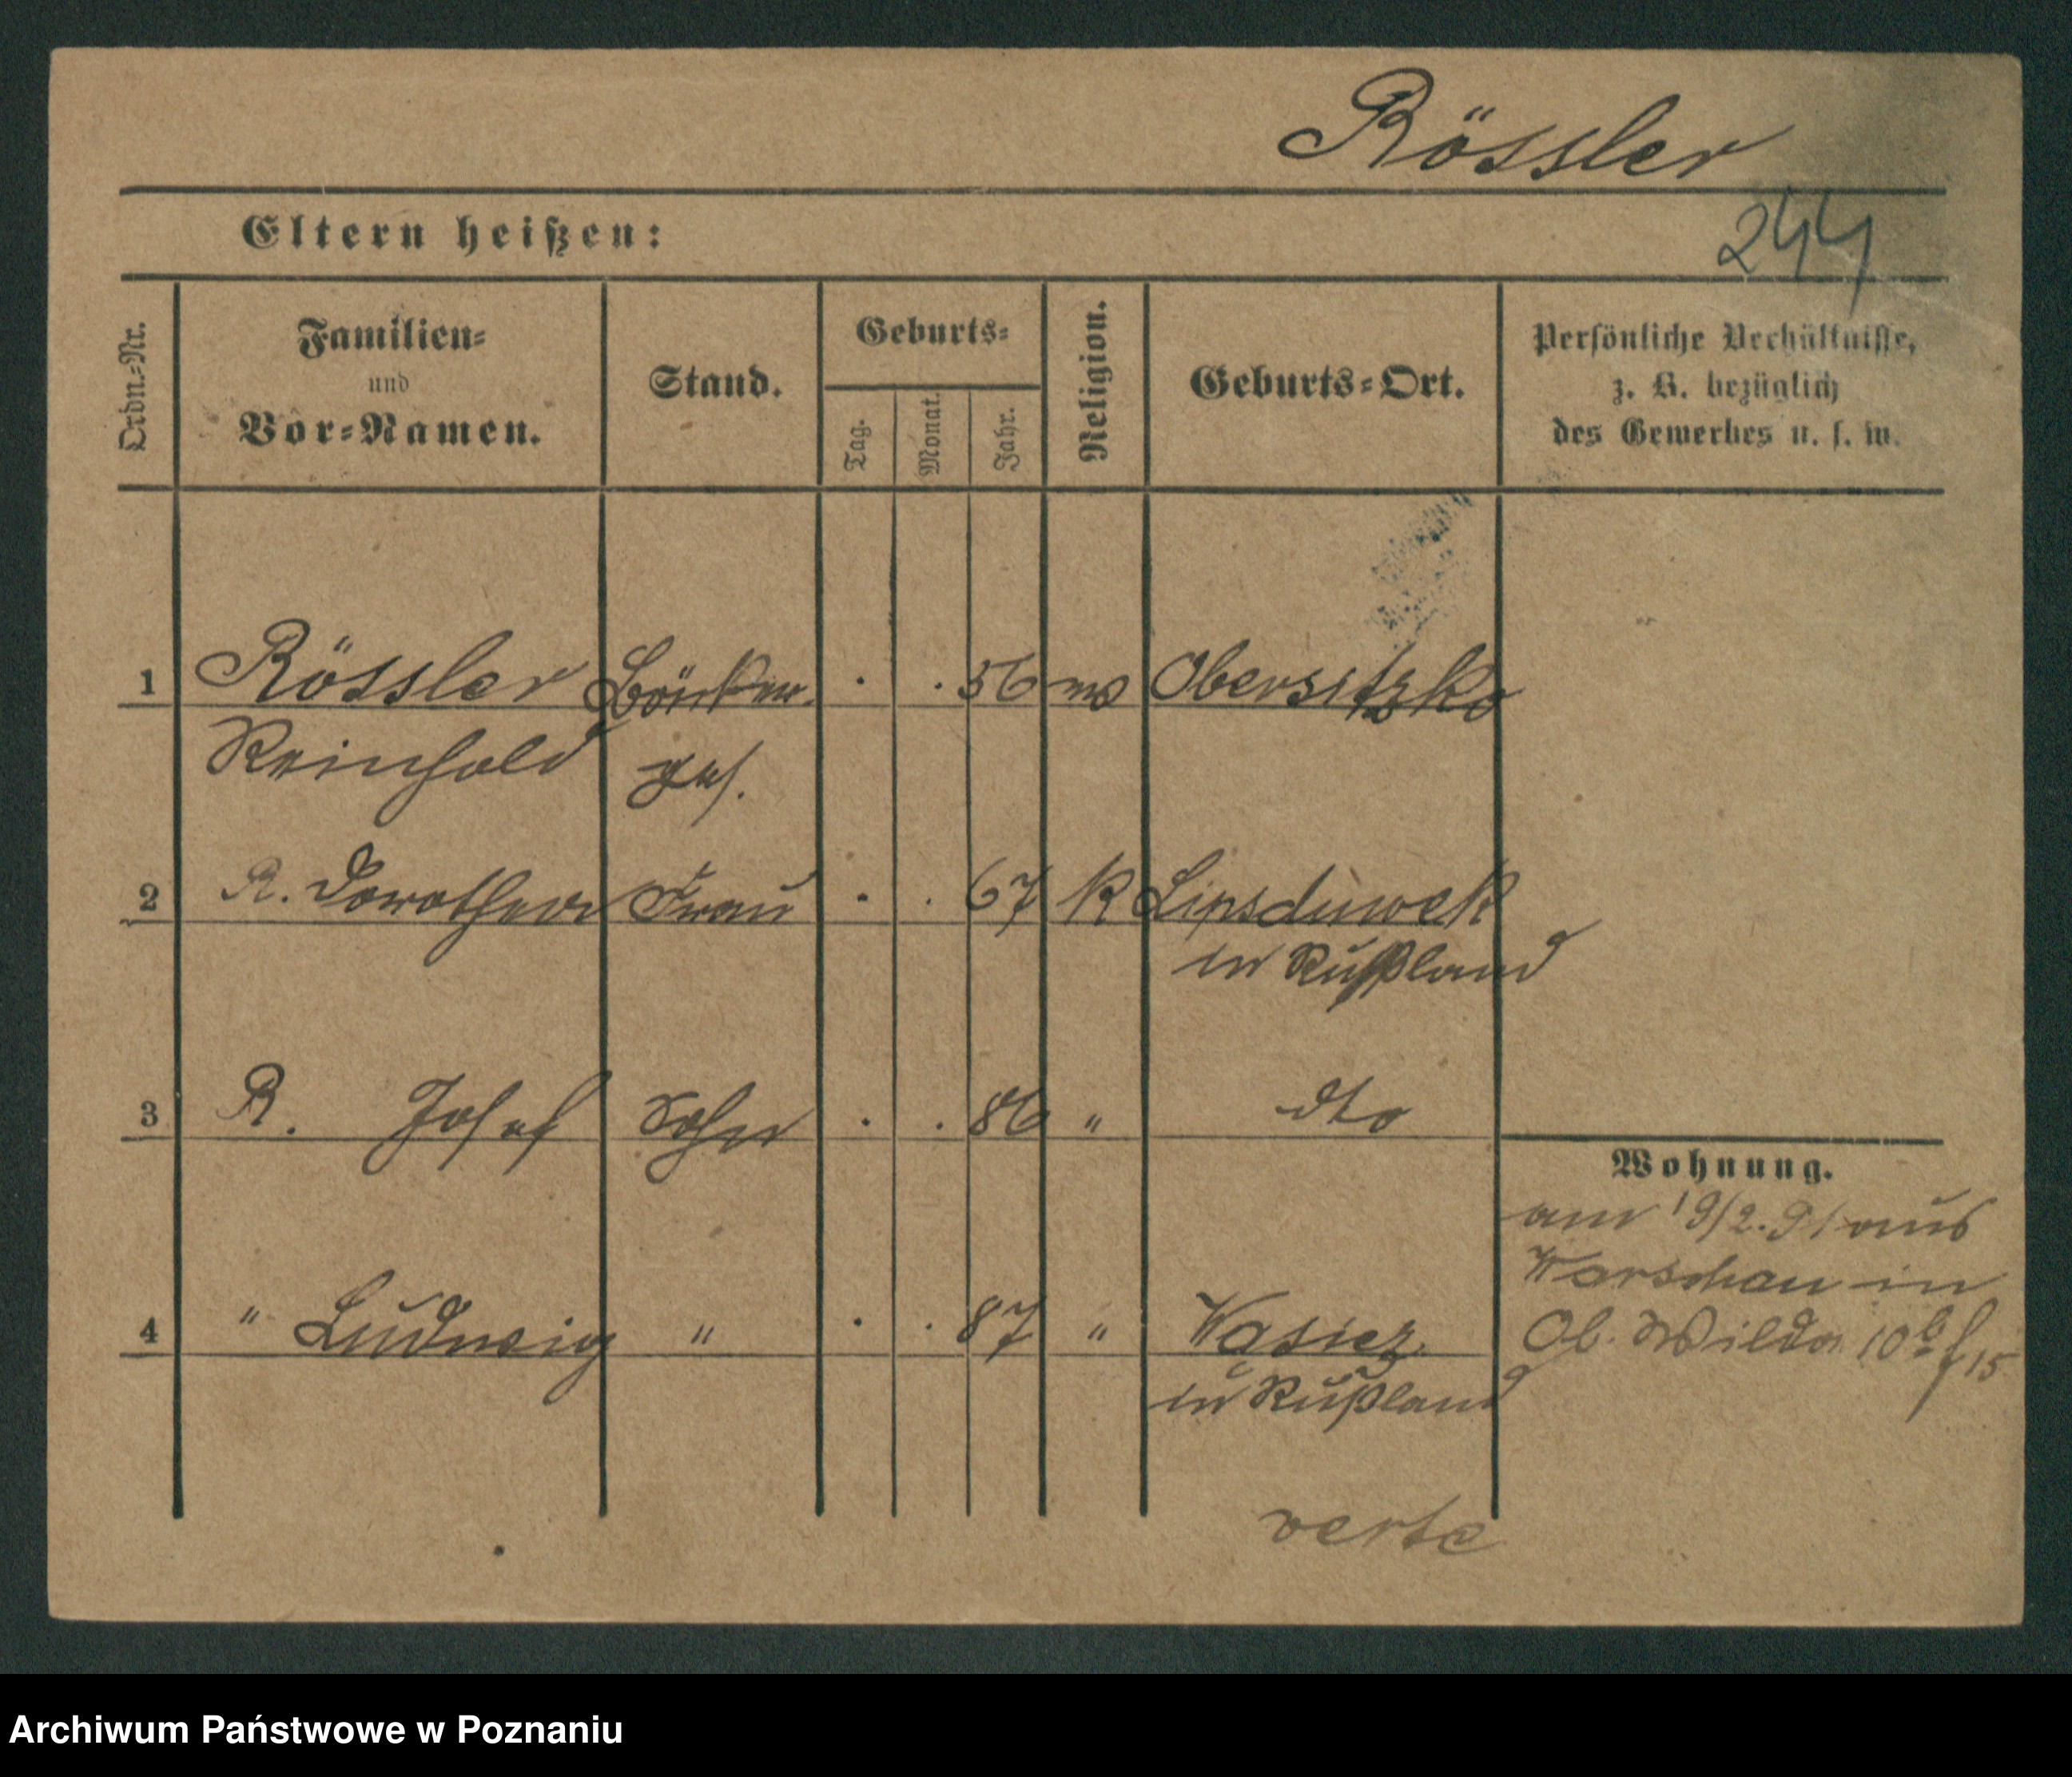 Rössler
244
Eltern heißen:
Ordn.-Nr.
Familien-
und
Vor-Namen.
Stand.
Geburts-
Tag.
Monat.
Jahr.
Religion.
Geburts-Ort.
Persönliche Verhältnisse,
z. B. bezüglich
des Gewerbes u. s. w.
1 Rössler . . 56 Obersitzko
Reinhold ges.
2 R. Dorothea Frau . . 67 K
in Rußland
3 R. Josef Sohn . . 86 " dto
4 " Ludwig " . . 87 "
in Rußland
Wohnung.
am 19/2. 91 aus
Warschau in
Ob. Wilda 10
verte
Archiwum Państwowe w Poznaniu